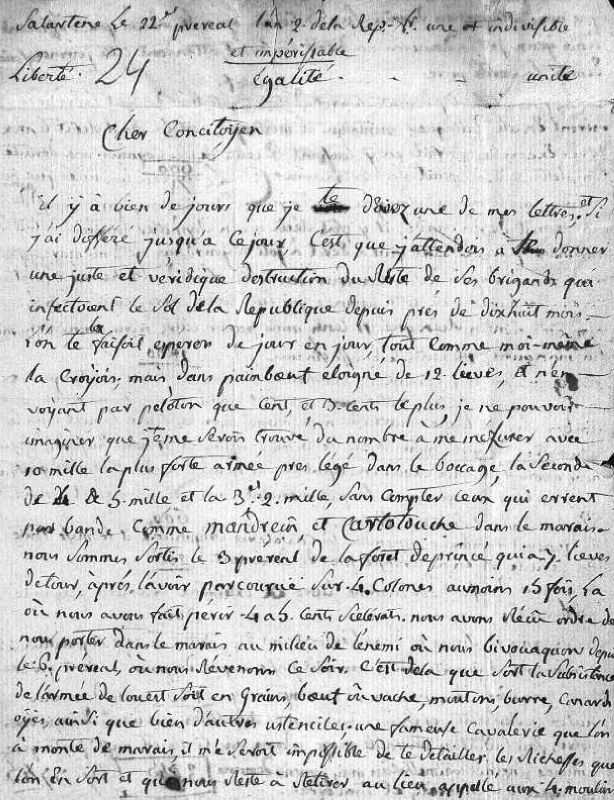 Salartene Le 22 prereal l'an 2 dela Rep. fr. une et indivisible
et impérissable
Liberté. 24 égalité. - - unité
Cher Concitoyen
il y à bien de jours que je une de mes lettres, et Si
j'ai différé jusqu'a ce jour, C'est que j'attendois a donner
une juste et véridique destruction du Reste de Ses brigands qui
infectoient le Sol dela Republique depuis prés de dixhuit mois.
l'on te la faisoit esperer de jour en jour, tout comme moi-même
la Croyois, mais dans painbœuf eloigne de 12. lieves, et n'en
voyant par peloton que Cent, et 3. Cents le plus, je ne pouvois
imaginer que je me Serois trouvé du nombre à me mézurer avec
10 mille la plus forte armée pres légé dans le boccage, la Seconde
de 4 & 5. mille et la 3. 2. mille, Sans Compter Ceux qui errent
par bande Comme mandrein, et Cartotouche dans le marais.
nous Sommes Sortis le 3 prereal de la foret de princé qui a 7. lieves
de tour, après l'avoir parcourrue Sur 4. Colones au moins 15 fois, La
où nous avons fait périr 4 a 5. Cents Scelerats. nous avons Récû ordre de
nous porter dans le marais au milieu de l'énemi où nous bivouaquons depuis
le 6. prereal, où nous Revenons Ce Soir. C'est dela que Sort la Subsistance
de l'armée de l'ouest Soit en Grains, bœuf où vache, moutins, burre, Canards
oyes, ainsi que bien d'autres ustenciles, une fameuse Cavalerie que l'on
à monté de marais, il me Seroit impossible de te detailler les Richesses que
l'on En Sort et que nous Reste à Retirer au lieu appellé aux 4. moulins